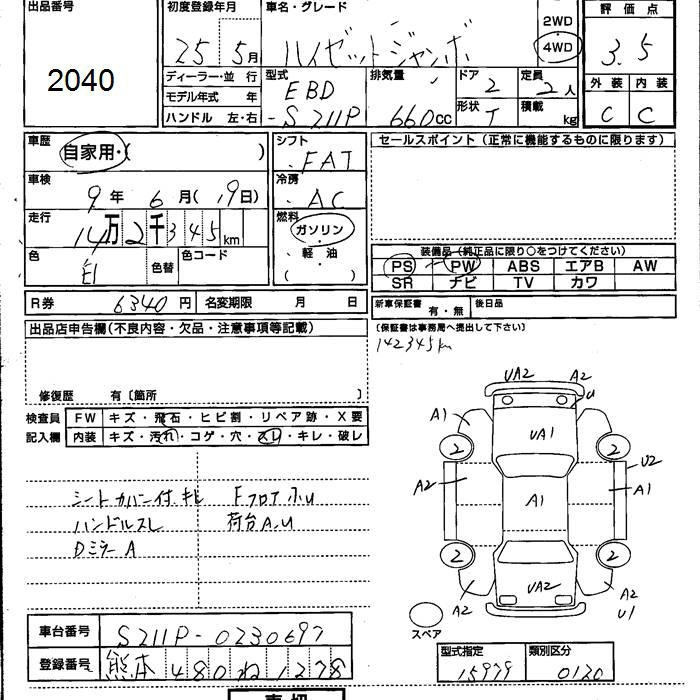 出品番号
2040
初度登録年月
25 5月
車名・グレード
ハイゼットジャンボ
2WD
4WD
評価点
3.5
ディーラー・並行
モデル年式 年
ハンドル 左・右
型式
EBD
-S211P
排気量
660cc
ドア
2
形状
T
定員
2人
積載
kg
外装 内装
C C
車歴
自家用・( )
シフト
FAT
セールスポイント(正常に機能するものに限ります)
車検
9年 6月( 19日)
冷房
AC
走行
14万2千345km
燃料
ガソリン
・軽油
( )
色
色替
色コード
装備品(純正品に限り○をつけてください)
PS PW ABS エアB AW
SR ナビ TV カワ
R券 6340円
名変期限 月 日
新車保証書 有・無
後日品
(保証書は事務局へ提出して下さい)
142345km
出品店申告欄(不良内容・欠品・注意事項等記載)
修復歴 有〔箇所 〕
検査員
記入欄
FW キズ・飛石・ヒビ割・リペア跡・X要
内装 キズ・汚れ・コゲ・穴・スレ・キレ・破レ
シートカバー付 キレ
ハンドルスレ
DミラーA
Fフロア小U
荷台A.U
UA2 A2
U
A1
UA1
2 2
U2
A2 A1 A1
2 2
A2 UA2 A2
U1
スペア
車台番号 S211P-0230697
登録番号 熊本480ね1278
型式指定
15979
類別区分
0120